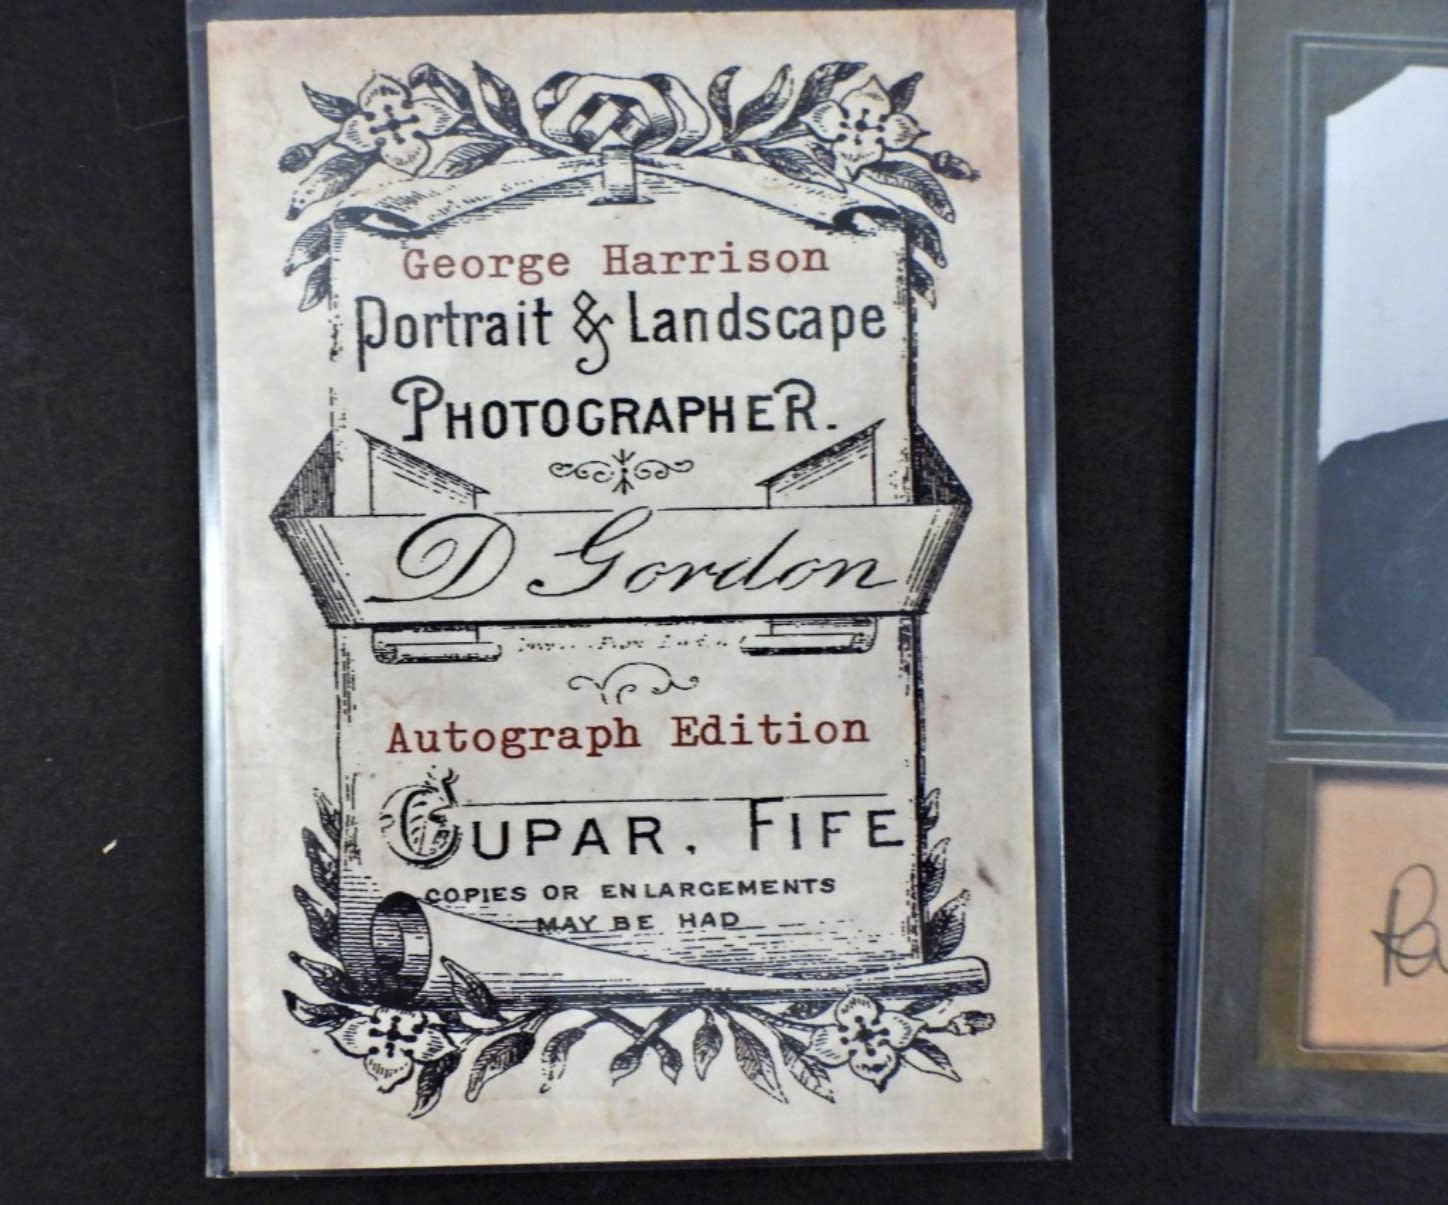 George Harrison
Portrait & Landscape
PHOTOGRAPHER.
D Gordon
Autograph Edition
CUPAR, FIFE
COPIES OR ENLARGEMENTS
MAY BE HAD